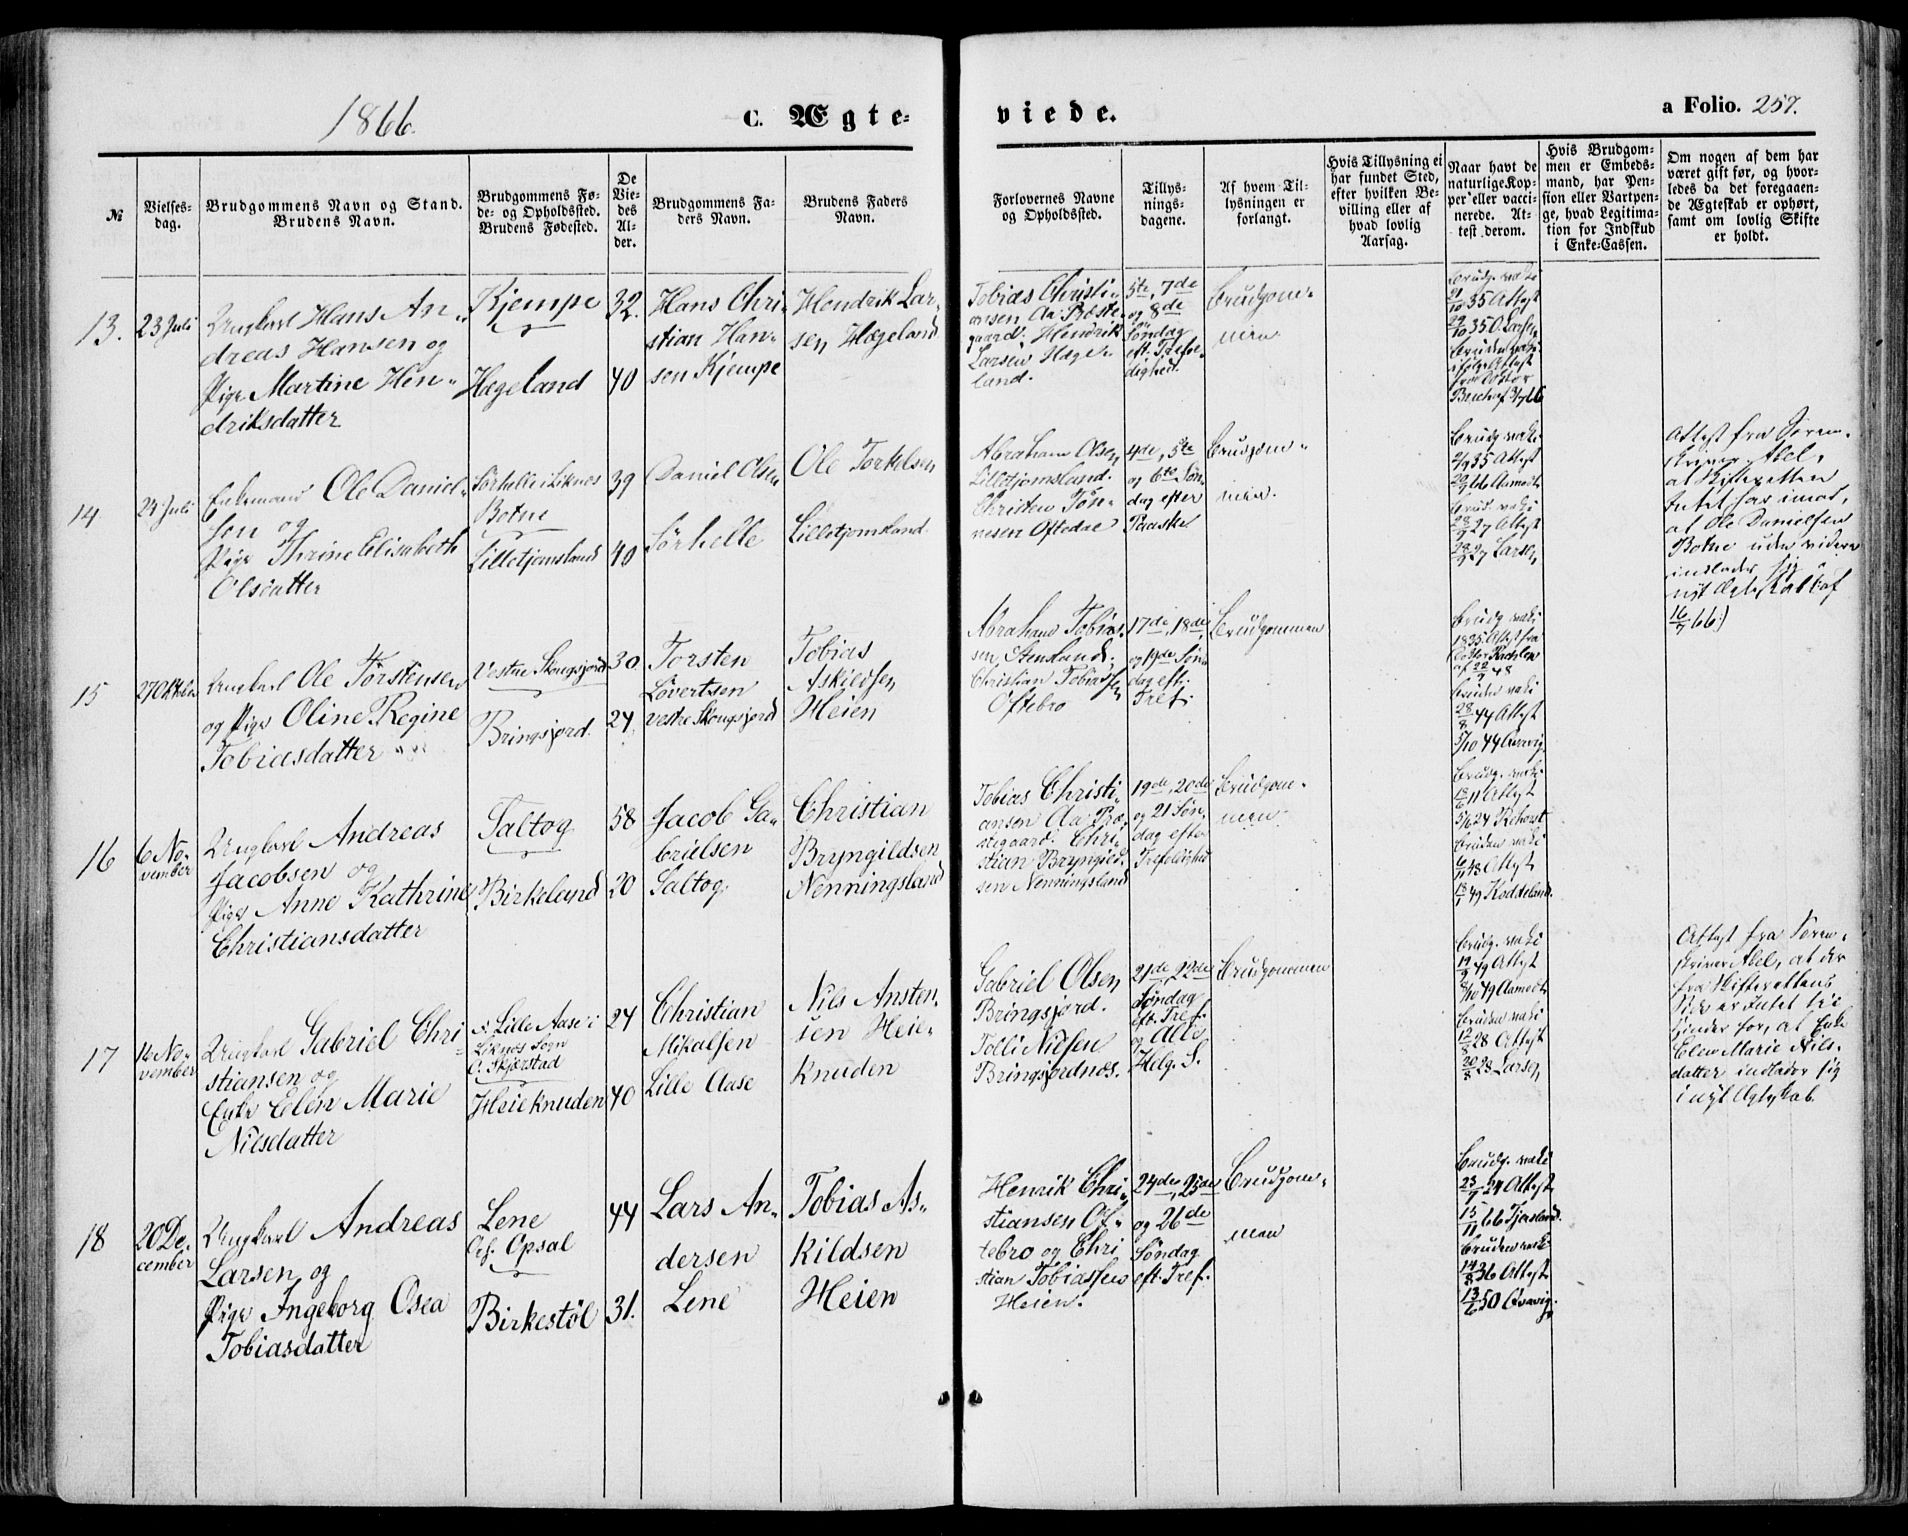 1866.
C. Ægte-
viede.
a Folio. 257.
№
Vielses-
dag.
Brudgommens Navn og Stand.
Brudens Navn.
Brudgommens Fø-
de- og Opholdssted.
Brudens Fødested.
De
Vie-
des
Al-
der.
Brudgommens Fa-
ders Navn.
Brudens Faders
Navn.
Forlovernes Navne
og Opholdssted.
Tillys-
nings-
dagene.
Af hvem Til-
lysningen er
forlangt.
Hvis Tillysning ei
har fundet Sted,
efter hvilken Be-
villing eller af
hvad lovlig
Aarsag.
Naar havt de
naturlige Kop-
per eller vacci-
nerede. At-
test derom.
Hvis Brudgom-
men er Embeds-
mand, har Pen-
sion eller Vartpen-
ge, hvad Legitima-
tion for Indskud
i Enke-Cassen.
Om nogen af dem har
været gift før, og hvor-
ledes da det foregaaen-
de Ægteskab er ophørt,
samt om lovlig Skifte
er holdt.
13.
23 Juli
Ungkarl Hans An-
dreas Hansen og
Pige Martine Hen-
driksdatter
Kjempe
Hægeland
32.
40
Hans Chri-
stian Han-
sen Kjempe
Hendrik Lar-
sen Hægeland
Tobias Christi-
ansen Aa Præste-
gaard. Hendrik
Larsen Hæge-
land.
5te, 7de
og 8de
Søndag
eft. Trefol-
dighed.
Brudgom-
men
Brudg. vak.
21/10 35 Attest
29/10 35 O. Larsen
Bruden vak.
ifølge Attest
fra Doktor
14
24 Juli
Enkemand Ole Daniel-
sen og
Pige Thrine Elisabeth
Olsdatter
Sørhelle i Liknes
Botne
Lilletjomsland
39
40
Daniel Olsen
Sørhelle
Ole Torkelsen
Lilletjomsland.
Abraham Olsen
Lilletjomsland.
Christen Tøn-
nesen Oftedal
4de, 5te
og 6te Søn-
dag efter
Paaske
Brudgom-
men.
Attest fra Soren-
skriver Abel,
at Skifteretten
Intet har imod,
at Ole Danielsen
Botne uden videre
indlader sig i
nyt Ægteskab (af
16/7 66.)
15
27 Oktober
Ungkarl Ole Torstensen
og Pige Oline Regine
Tobiasdatter
Vestre Skougsjord
Bringsjord.
30
24
Torsten
Løvertsen
Vestre Skougsjord
Tobias
Askildsen
Heien
Abraham Tobias-
sen, Stensland,
Christian Tobiassen
Oftebro
17de, 18de,
og 19de Søn-
dag eft.
Tref.
Brudgommen
Bruden vak.
28/8 44 Attest
16
6 No-
vember
Ungkarl Andreas
Jacobsen og
Pige Anne Kathrine
Christiansdatter
Saltog
Birkeland
58
20
Jacob Ga-
brielsen
Saltog.
Christian
Bryngildsen
Nenningsland
Tobias Christi-
ansen Aa Præ-
stegaard. Chri-
stian Bryngild-
sen Nenningsland
19de, 20de
og 21 Søn-
dag efter
Trefoldighed
Brudgom-
men
17
16 No-
vember
Ungkarl Gabriel Chri-
stiansen og
Enke Elen Marie
Nilsdatter
Lille Aase i
Liknes Sogn
O. Skjerstad
Heieknuden
24
40
Christian
Mikalsen
Lille Aase
Nils Ansten-
sen Heie-
knuden
Gabriel Olsen
Bringsjord.
Tolli Nilsen
Bringsjordnes.
21de, 22de
Søndag
eft. Tref.
og Alle
Helg. S.
Brudgommen
Attest fra Soren-
skriver Abel, at der
fra Skifterettens
Side er Intet til
Hinder for, at Enke
Elen Marie Nils-
datter indlader sig
i nyt Ægteskab.
18
20 De-
cember
Ungkarl Andreas
Larsen og
Pige Ingeborg Osea
Tobiasdatter
Lene
Opsal
Birkestøl
44
31.
Lars An-
dersen
Lene
Tobias As-
kildsen
Heien
Henrik Chri-
stiansen Of-
tebro og Chri
stian Tobiassen
Heien.
24de, 25de
og 26de
Søndag
eft. Tref.
Brudgom-
men